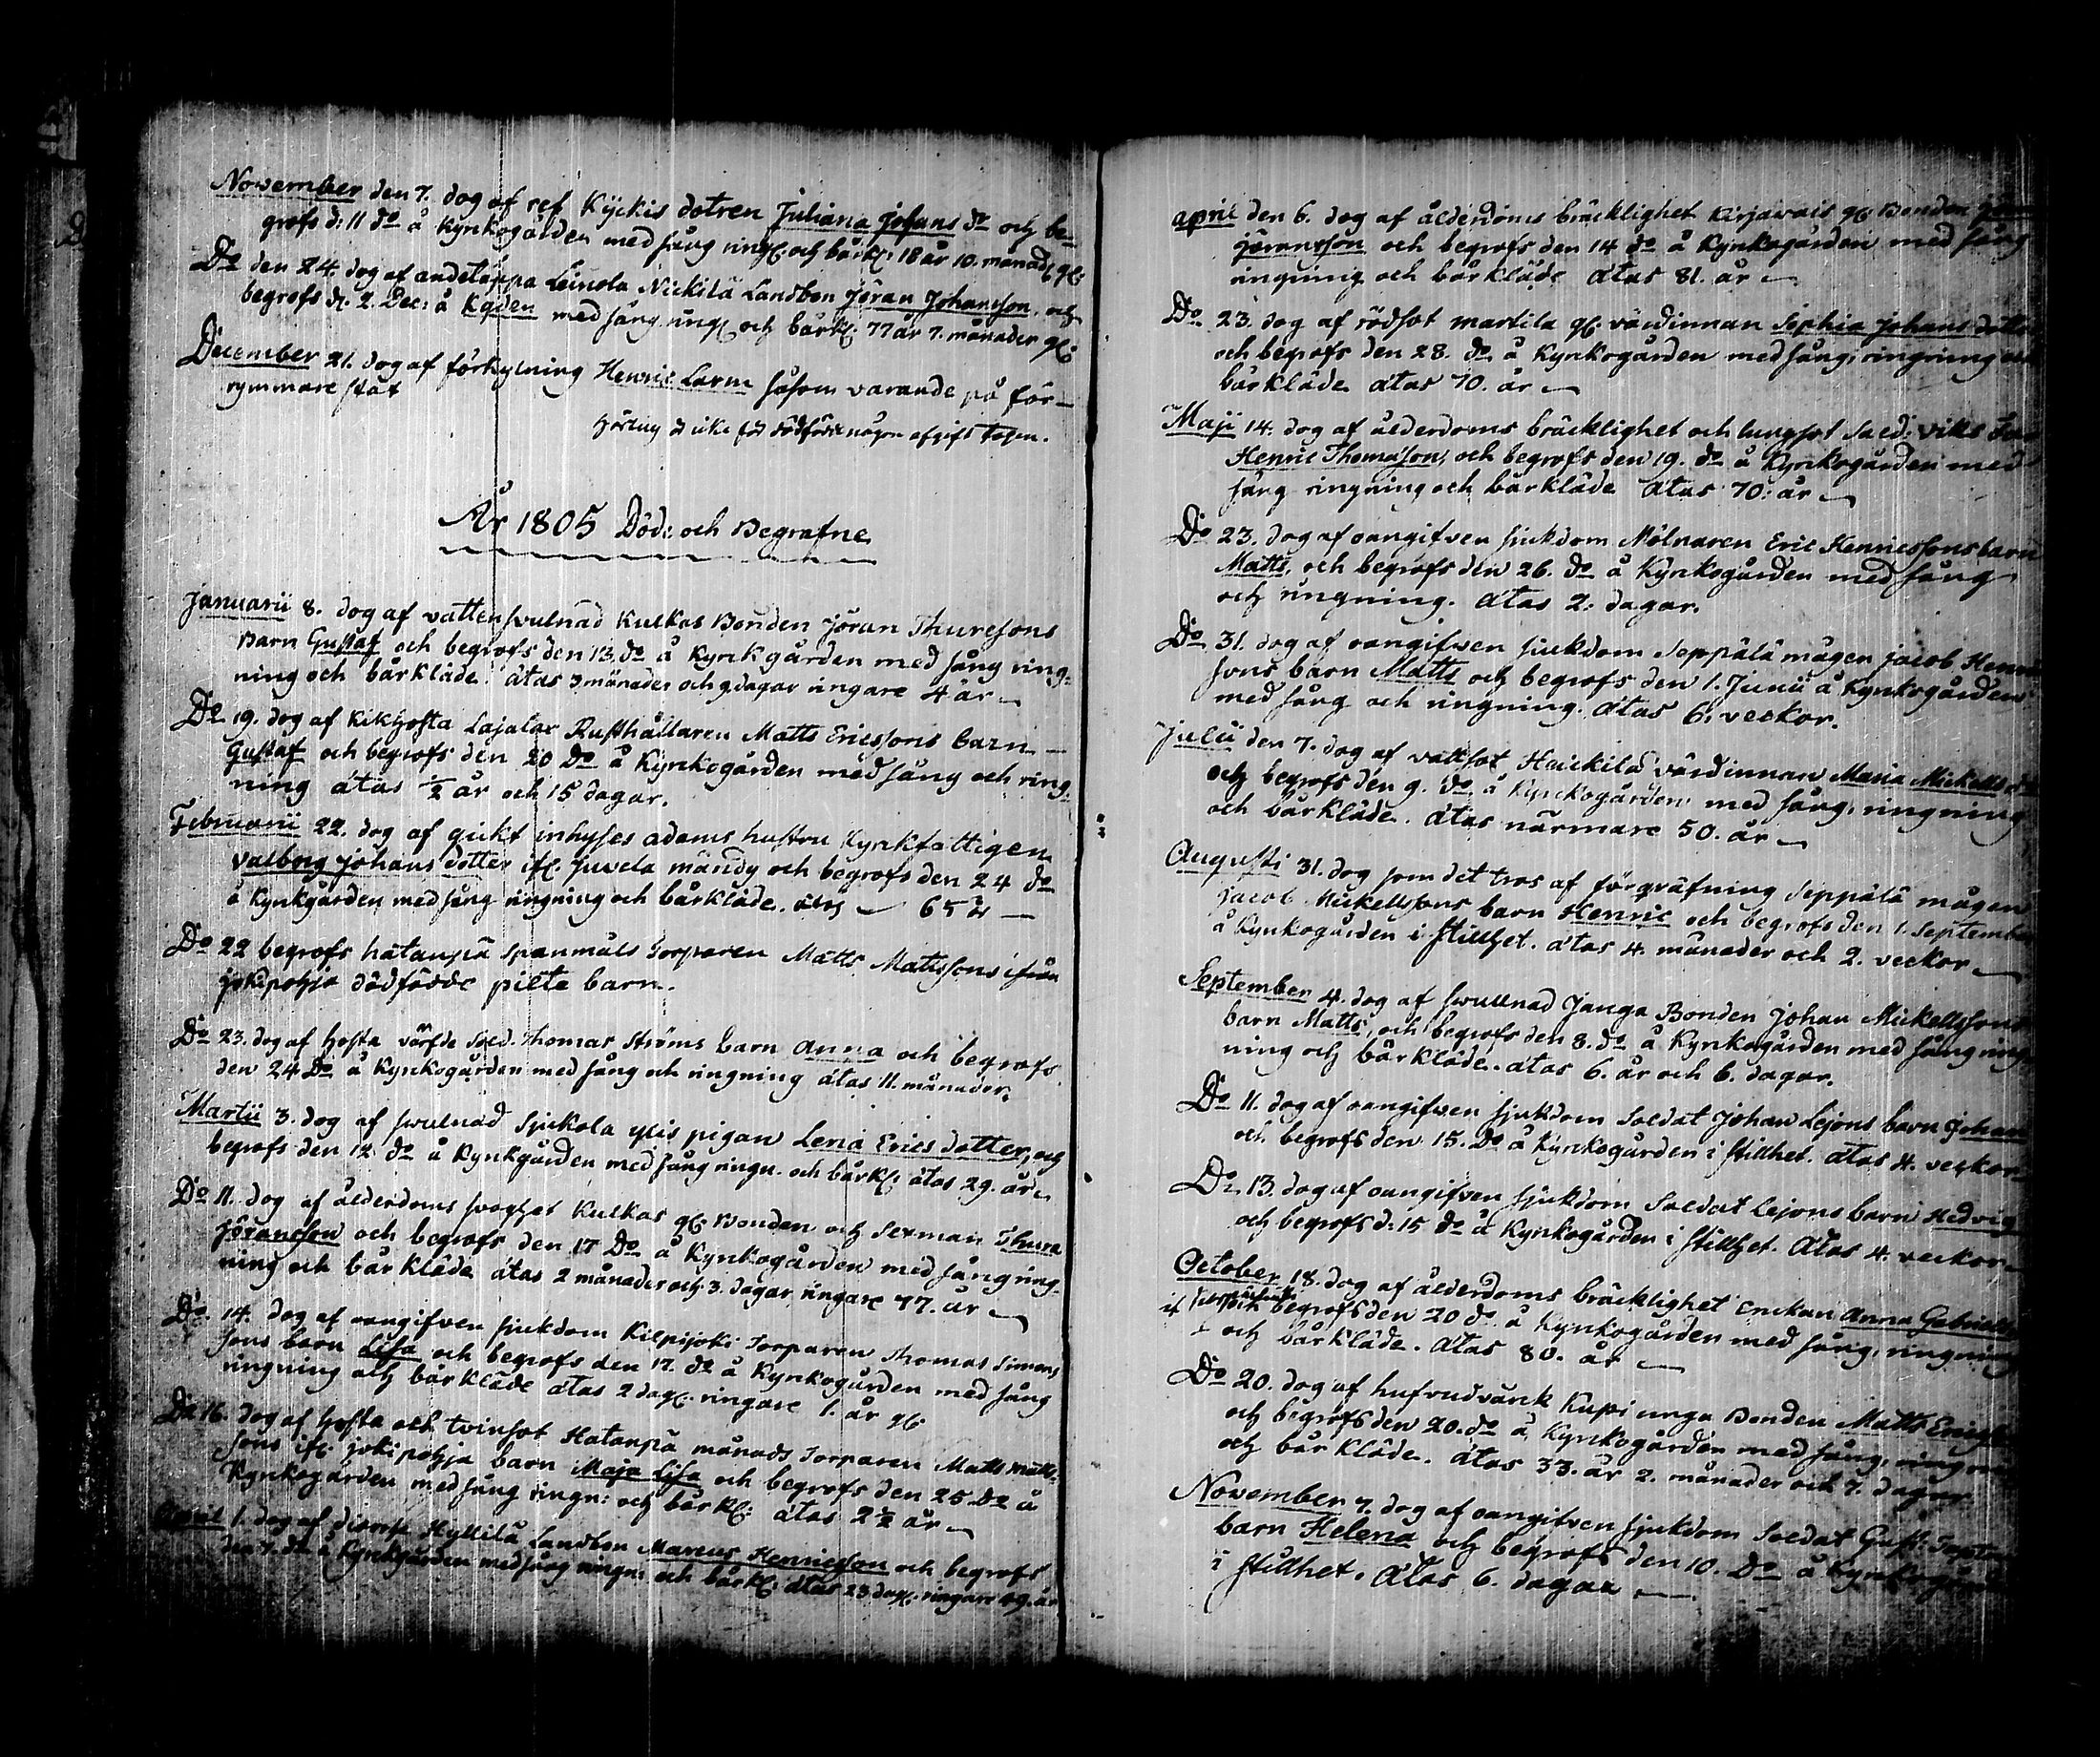 November den 7. dog af ref Kyckis dotren Juliana Johans do och be-
grofs d: 11 do å Kyrkogården med sång ring: och bårkl: 18 år 10. månad: gl:
Do den 24. dog af andetäppa Leinola Nickilä Landbon Jöran Johansson, och
begrofs d. 2. Dec: å Kgden med sång ring och bårkl: 77 år 7. månader gl:
December 21. dog af förkylning Henric Larm såsom varande på för-
rymmare stat
År 1805 Döde och Begrafne
Januarii 8. dog af vattensvulnad Kulkas Bonden Jöran Thuresons
Barn Gustaf och begrofs den 13. do å Kyrkgården med sång ring-
ning och bårkläde. ätas 3 månader och 9 dagar ringare 4 år
Do 19. dog af Kikhosta Lajalax Rusthållaren Matts Ericssons barn
Gustaf och begrofs den 20 Do å Kyrkogården med sång och ring-
ning ätas ½ år och 15 dagar.
Februarii 22. dog af gickt inhyses adams hustru Kyrkfattigen
Valborg Johans dotter ifr. Juvela mändy och begrofs den 24 do
å Kyrkgården med sång ringning och bårkläde. ätas 65 år
Do 22 begrofs hatanpä Spanmåls Torparen Matts Mattssons ifrån
jokipohja dödfödde pilte barn.
Do 23. dog af hosta värfde Sold. Thomas Ströms barn Anna och begrofs
den 24 Do å Kyrkogården med sång och ringning ätas 11. månader.
Martii 3. dog af svulnad Sjukola ylis pigan Lena Erics dotter, och
begrofs den 12 do å Kyrkgården med sång ringn. och bårkl: ätas 29. år
Do 11. dog af ålderdoms svaghet Kulkas gl: Bonden och Sexman Thure
Jöransson och begrofs den 17 Do å Kyrkogården med sång ring-
ning och bårkläde ätas 2 månader och 3. dagar ringare 77. år
Do. 14. dog af oangifven sjukdom Kilpijoki Torparen Thomas Simons
sons barn Lisa och begrofs den 17. do å Kyrkogården med sång
ringning och bårkläde ätas 2 dag: ringare 1. år gl:
Do 16. dog af hosta och tvinsot Hatanpä månads Torparen Matts Matts-
sons ifr. jokipohja barn Maja Lisa och begrofs den 25 Do å
Kyrkogården med sång ringn: och bårkl: ätas 2½ år
April 1. dog af Hyllilä Landbon Marcus Henricsson och begrofs
den 7. do å Kyrkgården med sång ringn: och bårkl: ätas 23 dag: ringare 49. år
april den 6. dog af ålderdoms bräcklighet Kirjavais gl: Bonden
Jöransson och begrofs den 14 do å Kyrkogården med sång
ringning och bårkläde ätas 81. år
Do 23. dog af rödsot Martila gl: värdinnan Sophia Johans dotter
och begrofs den 28. do å Kyrkogården med sång, ringning
bårkläde ätas 70. år
Maji 14. dog af ålderdoms bräcklighet och lungsot Sold: viks
Henric Thomasson, och begrofs den 19. do å Kyrkogården med
sång ringning och bårkläde ätas 70: år
Do 23. dog af oangifven sjukdom Mölnaren Eric Henricssons barn
Matts, och begrofs den 26. do å Kyrkogården med sång
och ringning. ätas 2: dagar.
Do 31. dog af oangifven sjukdom Seppälä mågen Jacob
sons barn Matts och begrofs den 1. Junii å Kyrkogården
med sång och ringning. ätas 6. veckor.
Julii den 7. dog af vattsot Haickilä värdinnan Maria Mickells
och begrofs den 9. do å Kyrckogården med sång, ringning
och bårkläde. ätas närmare 50. år
Augusti 31. dog som det tros af förqväfning Seppälä mågen
Jacob Mickellssons barn Henric och begrofs den 1. September
å Kyrkogården i Stillhet. ätas 4. månader och 2. veckor
September 4. dog af svullnad Janga Bonden Johan Mickellssons
barn Matts, och begrofs den 8. do å Kyrkogården med sång ring-
ning och bårkläde. ätas 6. år och 6. dagar.
Do 11. dog af oangifven sjukdom Soldat Johan Lejons barn Johan
och begrofs den 15. Do å Kyrkogården i Stillhet. ätas 4. veckor
Do 13. dog af oangifven sjukdom Soldat Lejons barn Hedvig
och begrofs d: 15 do å Kyrkogården i Stillhet. ätas 4. veckor
October 18. dog af ålderdoms bräcklighet Enckan Anna Gabriells
begrofs den 20 do å Kyrkogården med sång, ringning
och bårkläde. ätas 80. år
Do 20. dog af hufvudvärk Kupi unga Bonden Matts
och begrofs den 20. do å Kyrkogården med sång, ringning
och bårkläde. ätas 33. år 2. månader och 7. dagar
November 7. dog af oangifven sjukdom Soldat Gust:
barn Helena och begrofs den 10. Do å Kyrkogården
i Stillhet. ätas 6. dagar